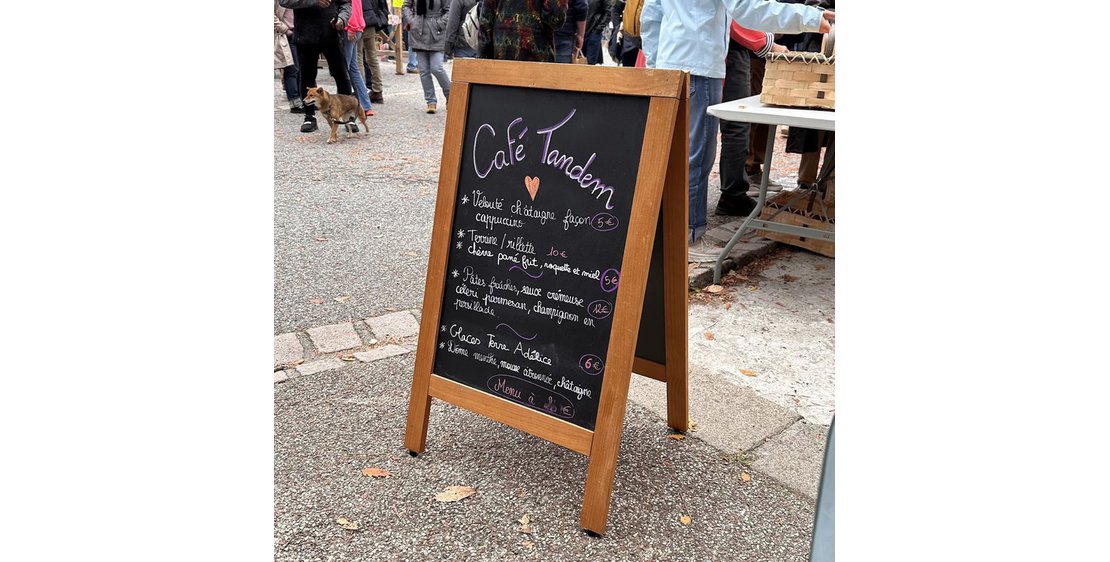 Café Tandem
* Velouté châtaigne façon 5€
cappuccino
* Terrine/rillette 10€
* chèvre pané frit, roquette et miel 5€
* Pâtes fraîches, sauce crémeuse
céleri parmesan, champignon en 12€
persillade
* Glaces Terre Adélice
* Dôme menthe, mousse citronnée, châtaigne 6€
Menu à €